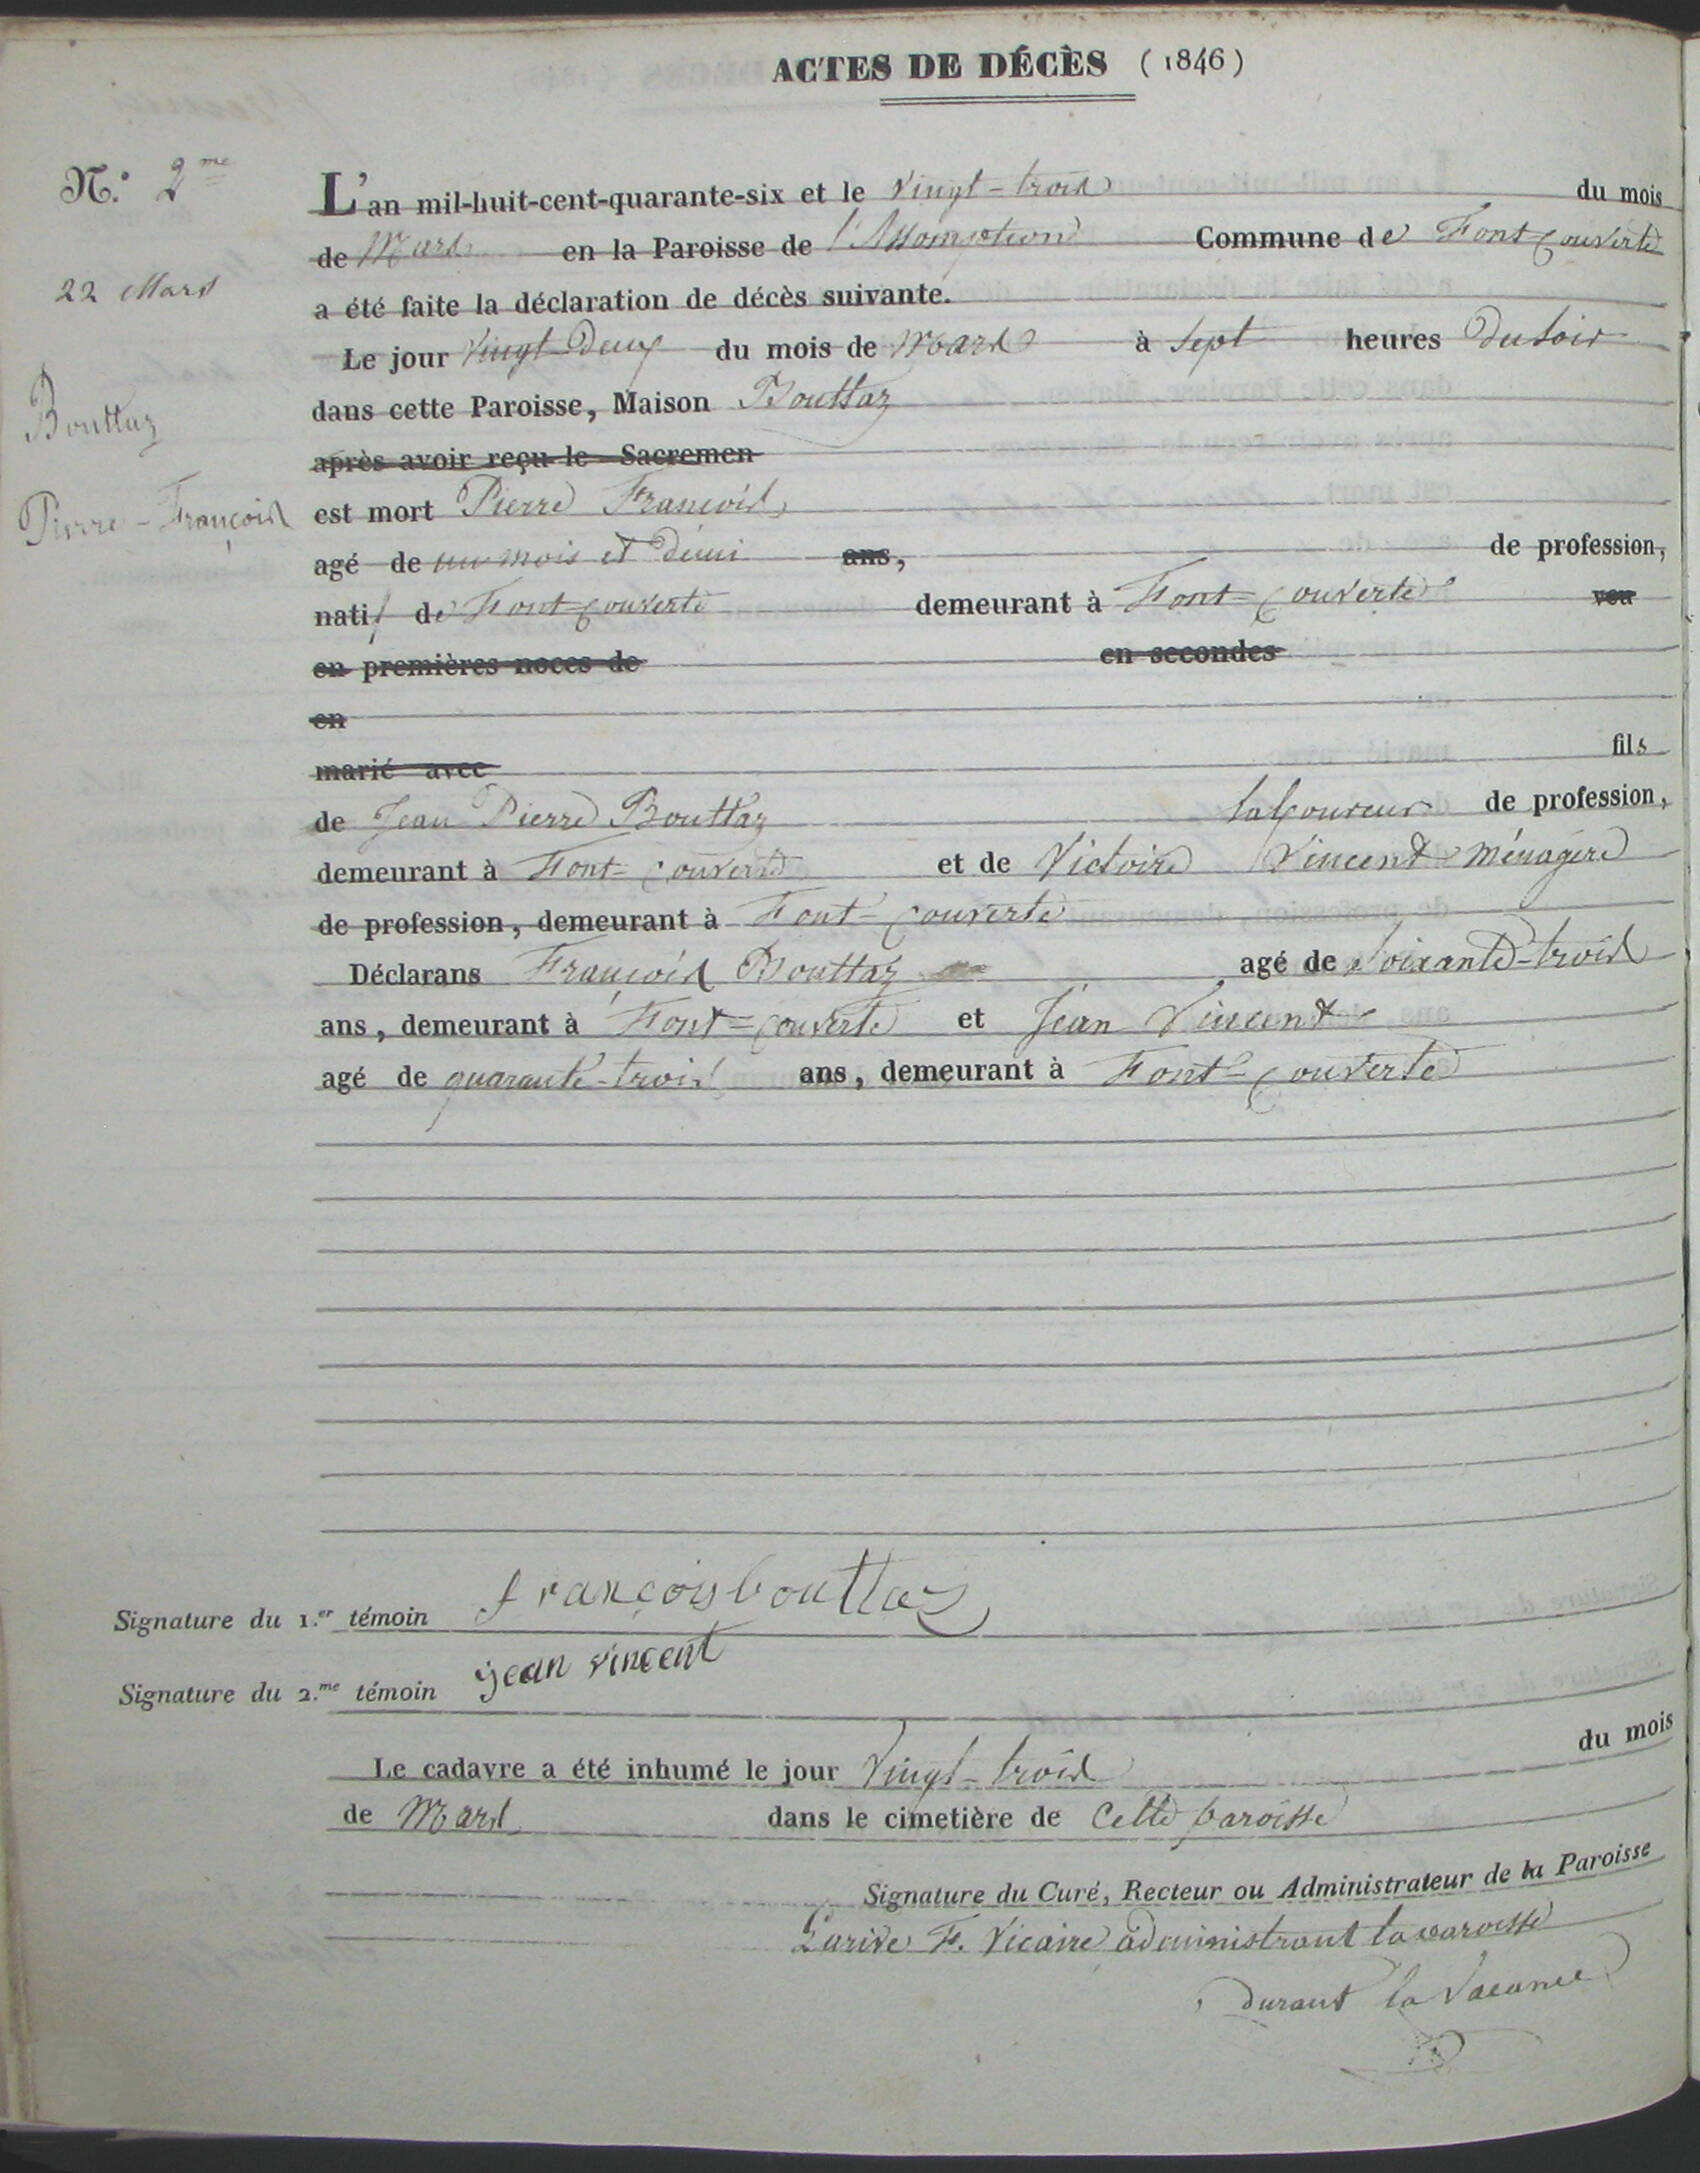 ACTES DE DÉCÈS (1846)
N.° 2me
L'an mil-huit-cent-quarante-six et le vingt-trois du mois
de Mars en la Paroisse de l'Assomption Commune de Font-couverte
22 Mars
a été faite la déclaration de décès suivante.
Le jour vingt-deux du mois de Mars à sept heures du soir
Bouttaz
dans cette Paroisse, Maison Bouttaz
après avoir reçu le Sacremen
Pierre-François
est mort Pierre François
agé de un mois et demi ans, de profession,
natif de Font-couverte demeurant à Font-couverte veu
en premières noces de en secondes
en
marié avec fils
de Jean Pierre Bouttaz laboureur de profession,
demeurant à Font-couverte et de Victoire Vincent ménagère
de profession, demeurant à Font-couverte
Déclarans François Bouttaz agé de soixante-trois
ans, demeurant à Font-couverte et Jean Vincent
agé de quarante-trois ans, demeurant à Font-couverte
Signature du 1.er témoin françois bouttaz
Signature du 2.me témoin jean vincent
Le cadavre a été inhumé le jour vingt-trois du mois
de Mars dans le cimetière de cette paroisse
Signature du Curé, Recteur ou Administrateur de la Paroisse
Larive F. Vicaire administrant la paroisse
durant la vacance